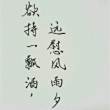 欲持一瓢酒，
远慰风雨夕